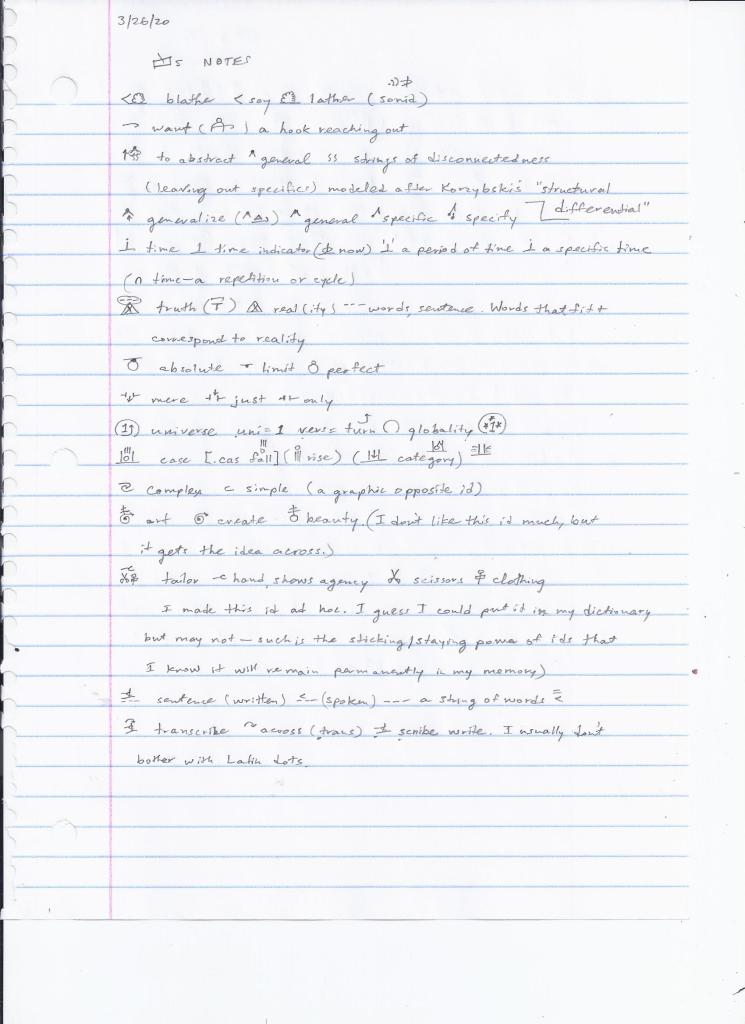 3/26/20
s NOTES
< blather < say lather (sonid)
¬ want ( ) a hook reaching out
to abstract ^ general ss strings of disconnectedness
(leaving out specifics) modeled after Korzybski's "structural
generalize ( ) ^ general specific specify differential"
i time ⊥ time indicator ( now) '⊥' a period of time i a specific time
(∩ time—a repetition or cycle)
truth ( T ) real (ity) --- words, sentence. Words that fit +
correspond to reality
absolute limit perfect
mere just only
universe uni = 1 vers = turn globality
case [.cas fall] ( rise) ( category)
complex ⊂ simple (a graphic opposite id)
art create beauty. (I don't like this id much, but
it gets the idea across.)
tailor hand, shows agency scissors clothing
I made this id ad hoc. I guess I could put it in my dictionary
but may not — such is the sticking/staying power of ids that
I know it will remain permanently in my memory)
sentence (written) (spoken) --- a string of words
transcribe ~ across (trans) scribe write. I usually don't
bother with Latin dots.